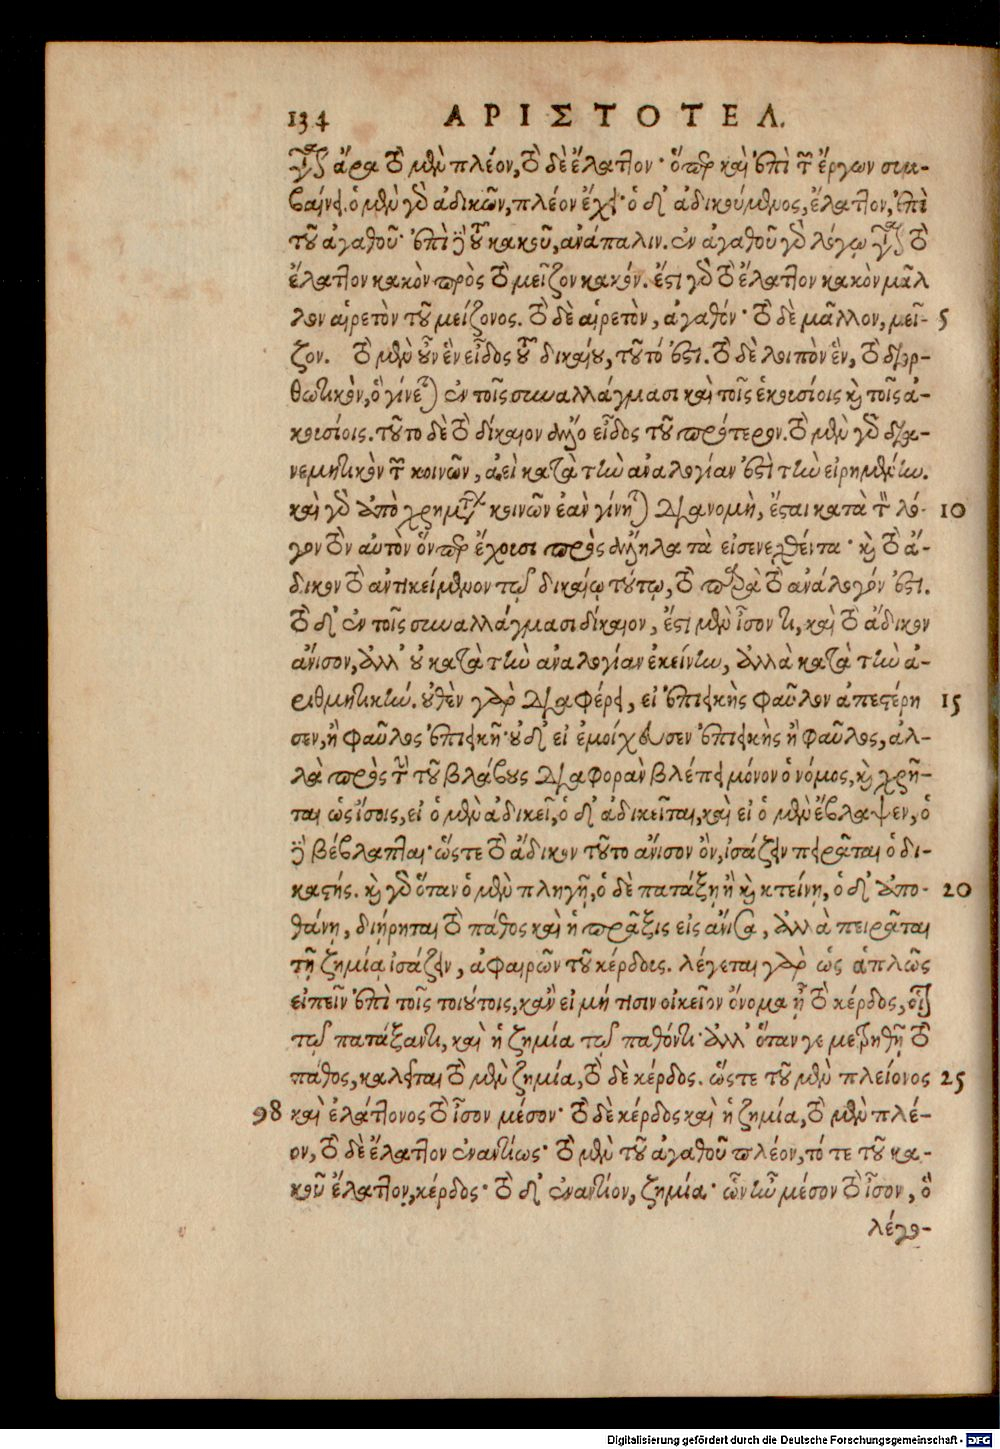 134 ΑΡΙΣΤΟΤΕΛ.
γίνεται ἄρα τὸ μὲν πλέον, τὸ δὲ ἔλαττον· ὅπερ καὶ ἐπὶ τῶν ἔργων συμ-
βαίνει. ὁ μὲν γὰρ ἀδικῶν, πλέον ἔχει· ὁ δ' ἀδικούμενος, ἔλαττον, ἐπὶ
τοῦ ἀγαθοῦ· ἐπὶ δὲ τοῦ κακοῦ, ἀνάπαλιν. ἐν ἀγαθοῦ γὰρ λόγῳ γίνεται τὸ
ἔλαττον κακὸν πρὸς τὸ μεῖζον κακόν. ἔστι γὰρ τὸ ἔλαττον κακὸν μᾶλ
λον αἱρετὸν τοῦ μείζονος. τὸ δὲ αἱρετὸν, ἀγαθόν· τὸ δὲ μᾶλλον, μεῖ- 5
ζον. τὸ μὲν οὖν ἓν εἶδος τοῦ δικαίου, τοῦτό ἐστι. τὸ δὲ λοιπὸν ἓν, τὸ διορ-
θωτικὸν, ὃ γίνεται ἐν τοῖς συναλλάγμασι καὶ τοῖς ἑκουσίοις καὶ τοῖς ἀ-
κουσίοις. τοῦτο δὲ τὸ δίκαιον ἄλλο εἶδος τοῦ πρότερον. τὸ μὲν γὰρ δια-
νεμητικὸν τῶν κοινῶν, ἀεὶ κατὰ τὴν ἀναλογίαν ἐστὶ τὴν εἰρημένην.
καὶ γὰρ ἀπὸ χρημάτων κοινῶν ἐὰν γίνηται διανομὴ, ἔσται κατὰ τὸν λό- 10
γον τὸν αὐτὸν ὅνπερ ἔχουσι πρὸς ἄλληλα τὰ εἰσενεχθέντα· καὶ τὸ ἄ-
δικον τὸ ἀντικείμενον τῷ δικαίῳ τούτῳ, τὸ παρὰ τὸ ἀνάλογόν ἐστι.
τὸ δ' ἐν τοῖς συναλλάγμασι δίκαιον, ἔστι μὲν ἶσον τι, καὶ τὸ ἄδικον
ἄνισον, ἀλλ' οὐ κατὰ τὴν ἀναλογίαν ἐκείνην, ἀλλὰ κατὰ τὴν ἀ-
ριθμητικήν. οὐθὲν γὰρ διαφέρει, εἰ ἐπιεικὴς φαῦλον ἀπεστέρη 15
σεν, ἢ φαῦλος ἐπιεικῆ· οὐδ' εἰ ἐμοίχευσεν ἐπιεικὴς ἢ φαῦλος, ἀλ-
λὰ πρὸς τὴν τοῦ βλάβους διαφορὰν βλέπει μόνον ὁ νόμος, καὶ χρῆ-
ται ὡς ἴσοις, εἰ ὁ μὲν ἀδικεῖ, ὁ δ' ἀδικεῖται, καὶ εἰ ὁ μὲν ἔβλαψεν, ὁ
δὲ βέβλαπται· ὥστε τὸ ἄδικον τοῦτο ἄνισον ὂν, ἰσάζειν πειρᾶται ὁ δι-
καστής. καὶ γὰρ ὅταν ὁ μὲν πληγῇ, ὁ δὲ πατάξῃ ἢ καὶ κτείνῃ, ὁ δ' ἀπο- 20
θάνῃ, διῄρηται τὸ πάθος καὶ ἡ πρᾶξις εἰς ἄνισα, ἀλλὰ πειρᾶται
τῇ ζημίᾳ ἰσάζειν, ἀφαιρῶν τοῦ κέρδους. λέγεται γὰρ ὡς ἁπλῶς
εἰπεῖν ἐπὶ τοῖς τοιούτοις, κἂν εἰ μή τισιν οἰκεῖον ὄνομα ᾖ τὸ κέρδος, οἷον
τῷ πατάξαντι, καὶ ἡ ζημία τῷ παθόντι· ἀλλ' ὅταν γε μετρηθῇ τὸ
πάθος, καλεῖται τὸ μὲν ζημία, τὸ δὲ κέρδος. ὥστε τοῦ μὲν πλείονος 25
98 καὶ ἐλάττονος τὸ ἶσον μέσον· τὸ δὲ κέρδος καὶ ἡ ζημία, τὸ μὲν πλέ-
ον, τὸ δὲ ἔλαττον ἐναντίως· τὸ μὲν τοῦ ἀγαθοῦ πλέον, τό τε τοῦ κα-
κοῦ ἔλαττον, κέρδος· τὸ δ' ἐναντίον, ζημία· ὧν ἦν μέσον τὸ ἶσον, ὃ
λέγο-
Digitalisierung gefördert durch die Deutsche Forschungsgemeinschaft - DFG